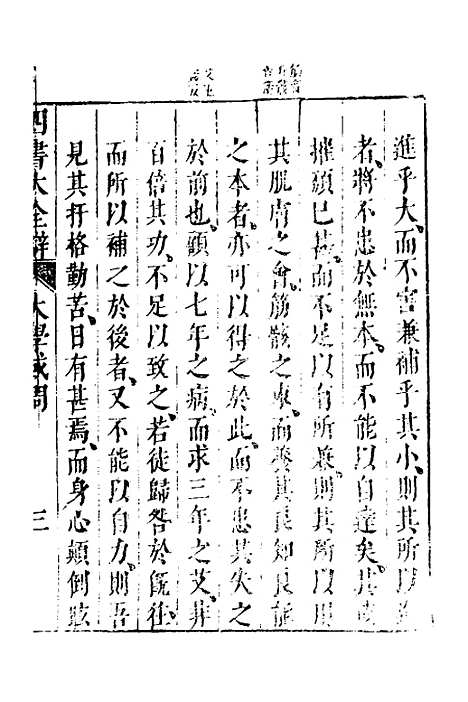 進乎大而不害兼補乎其小則其所以進
者將不患於無本而不能以自達矣其或
摧頹已甚而不足以有所兼則其所以固
其肌膚之會筋骸之束而養其良知良能
之本者亦可以得之於此而不患其失之
於前也顧以七年之病而求三年之艾非
百倍其功不足以致之若徒歸咎於既往
而所以補之於後者又不能以自力則吾
見其扞格勤苦日有甚焉而身心顛倒眩
四書大全辯 大學或問 三